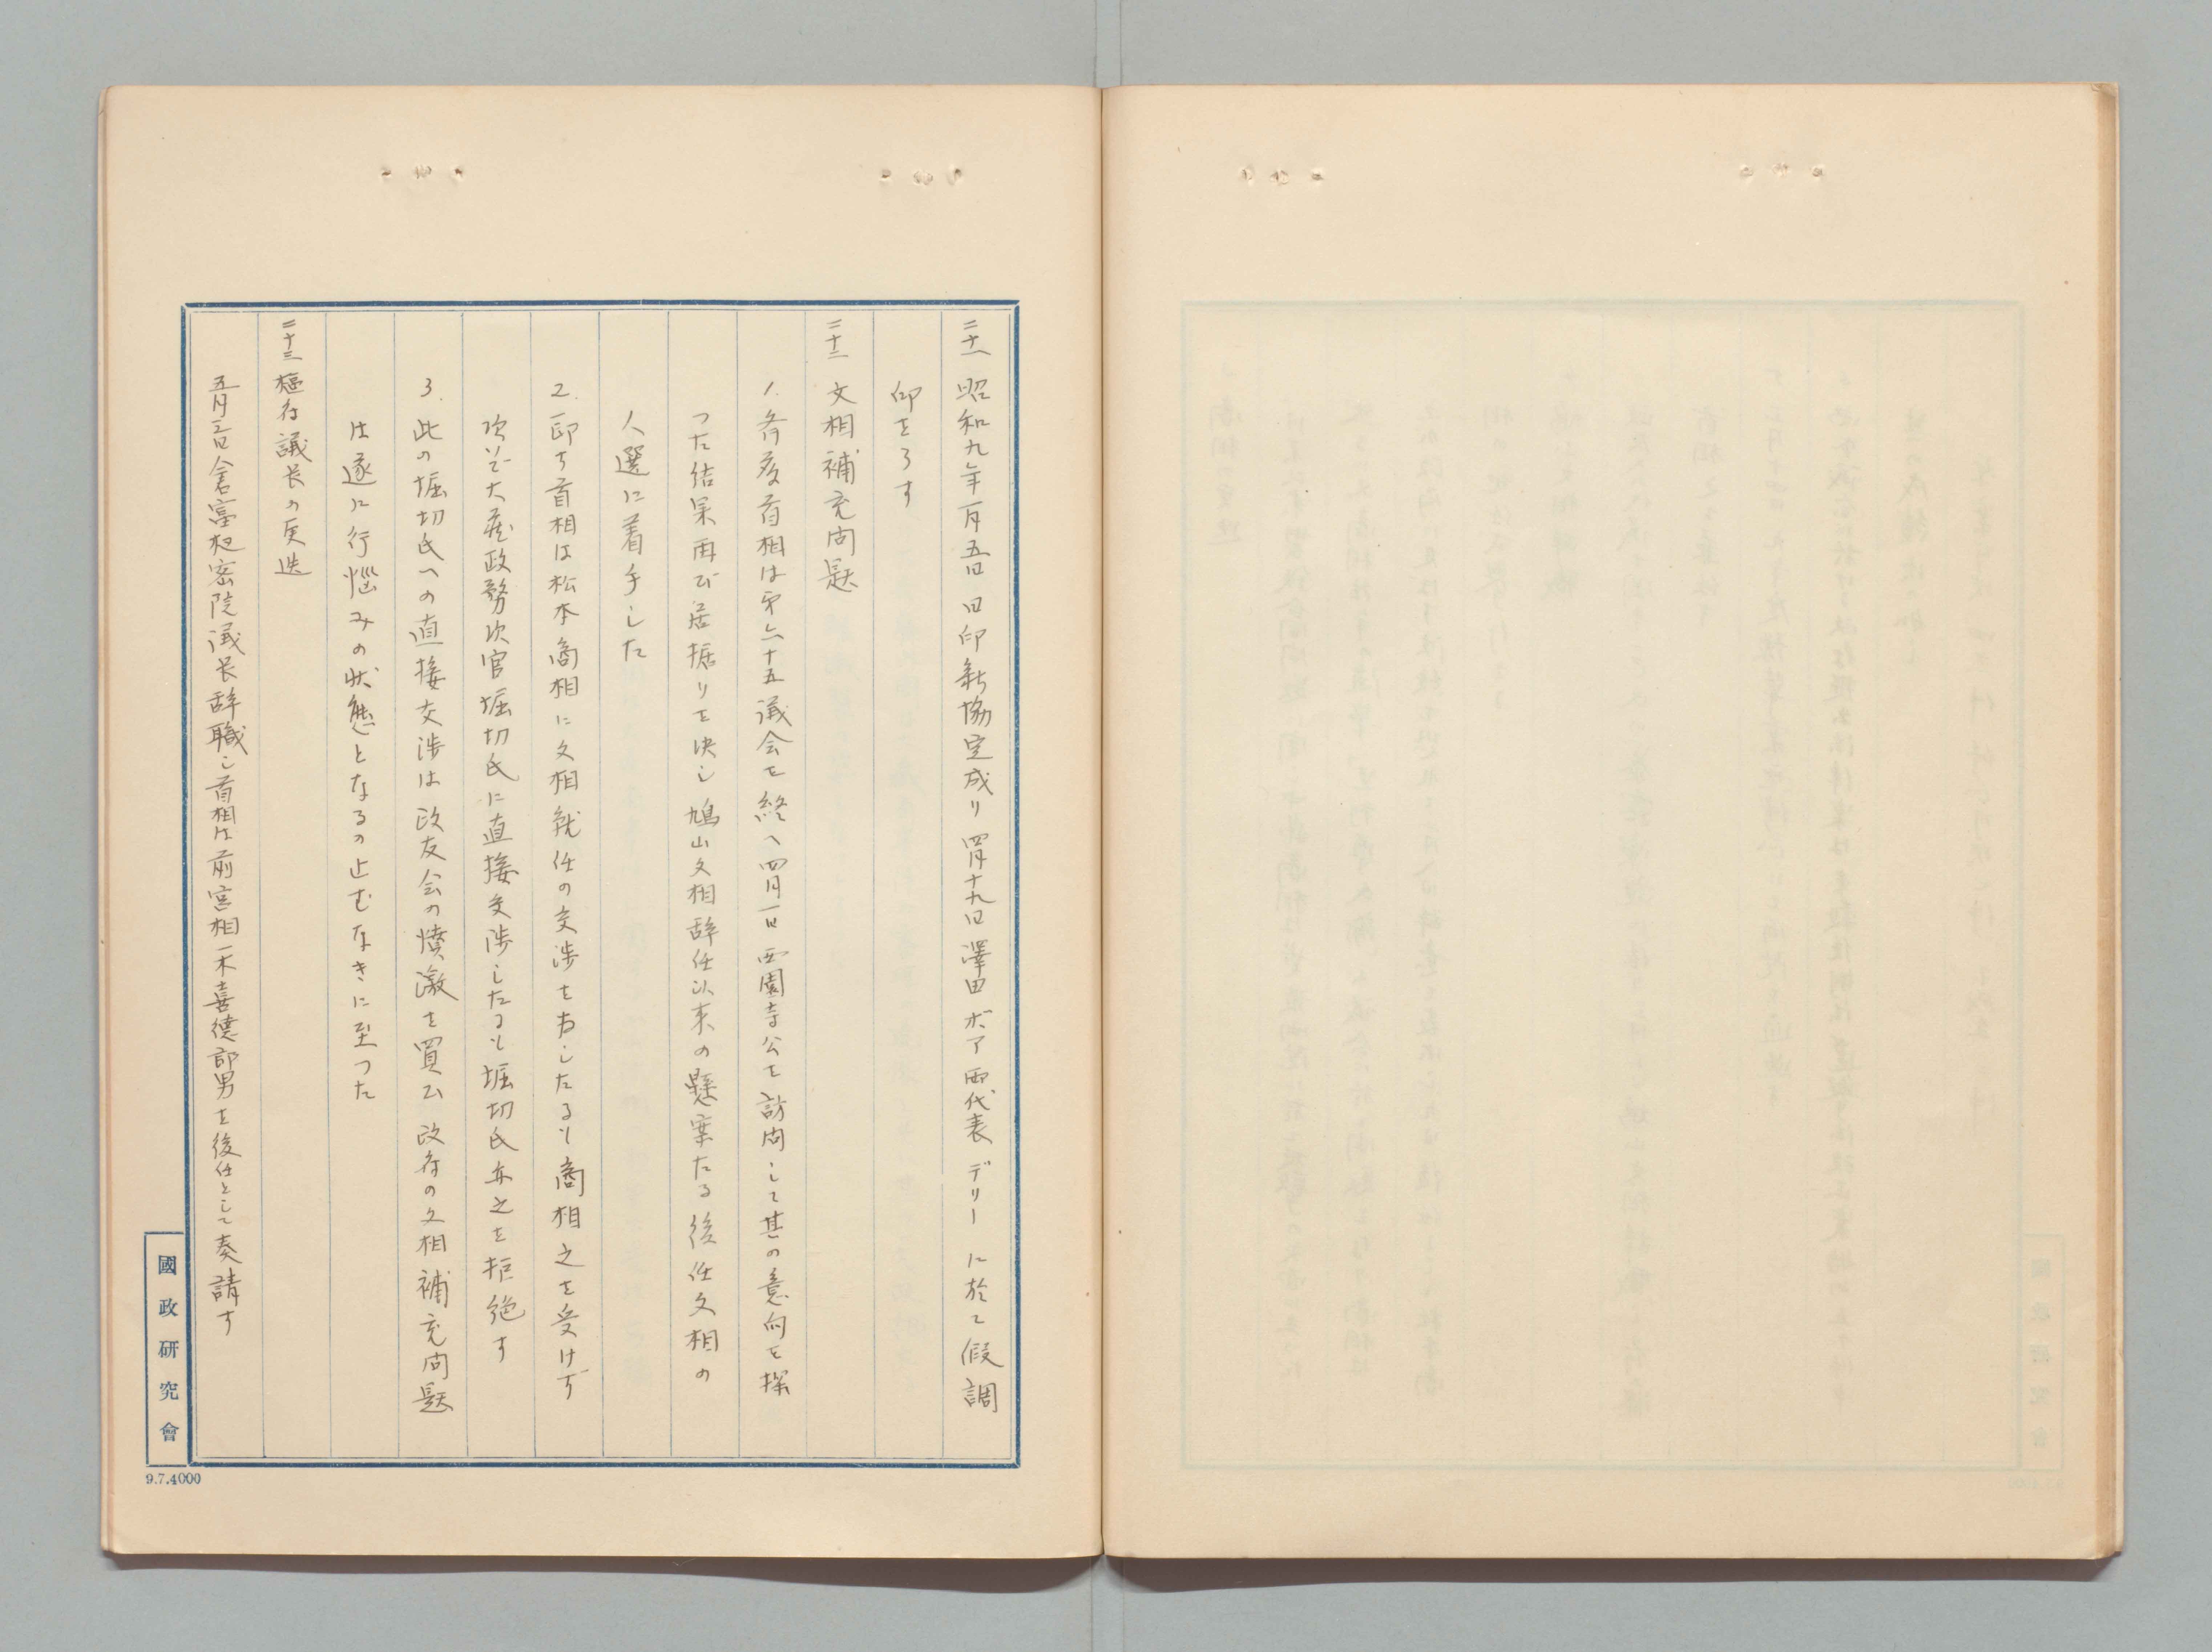 二十一 昭和九年一月五日日印新協定成リ四月十九日澤田ボア両代表デリーに於て假調
印を了す
二十二 文相補充问題
1. 斉藤首相は第六十五議会を終へ四月一日西園寺公を訪问して其の意向を探
つた結果再び居据りを決し鳩山文相辞任以来の懸案たる後任文相の
人選に着手した
2. 即ち首相は松本商相に文相就任の交渉を為したるも商相之を受けず
次いで大蔵政務次官堀切氏に直接交渉したるも堀切氏亦之を拒絶す
3. 此の堀切氏への直接交渉は政友会の憤激を買ひ政府の文相補充问題
は遂に行悩みの状態となるの止むなきに至つた
二十三 枢府議长の更迭
五月三日倉富枢密院議长辞職し首相は前宮相一木喜徳郎男を後任として奏請す
國政研究會
9.7.4000